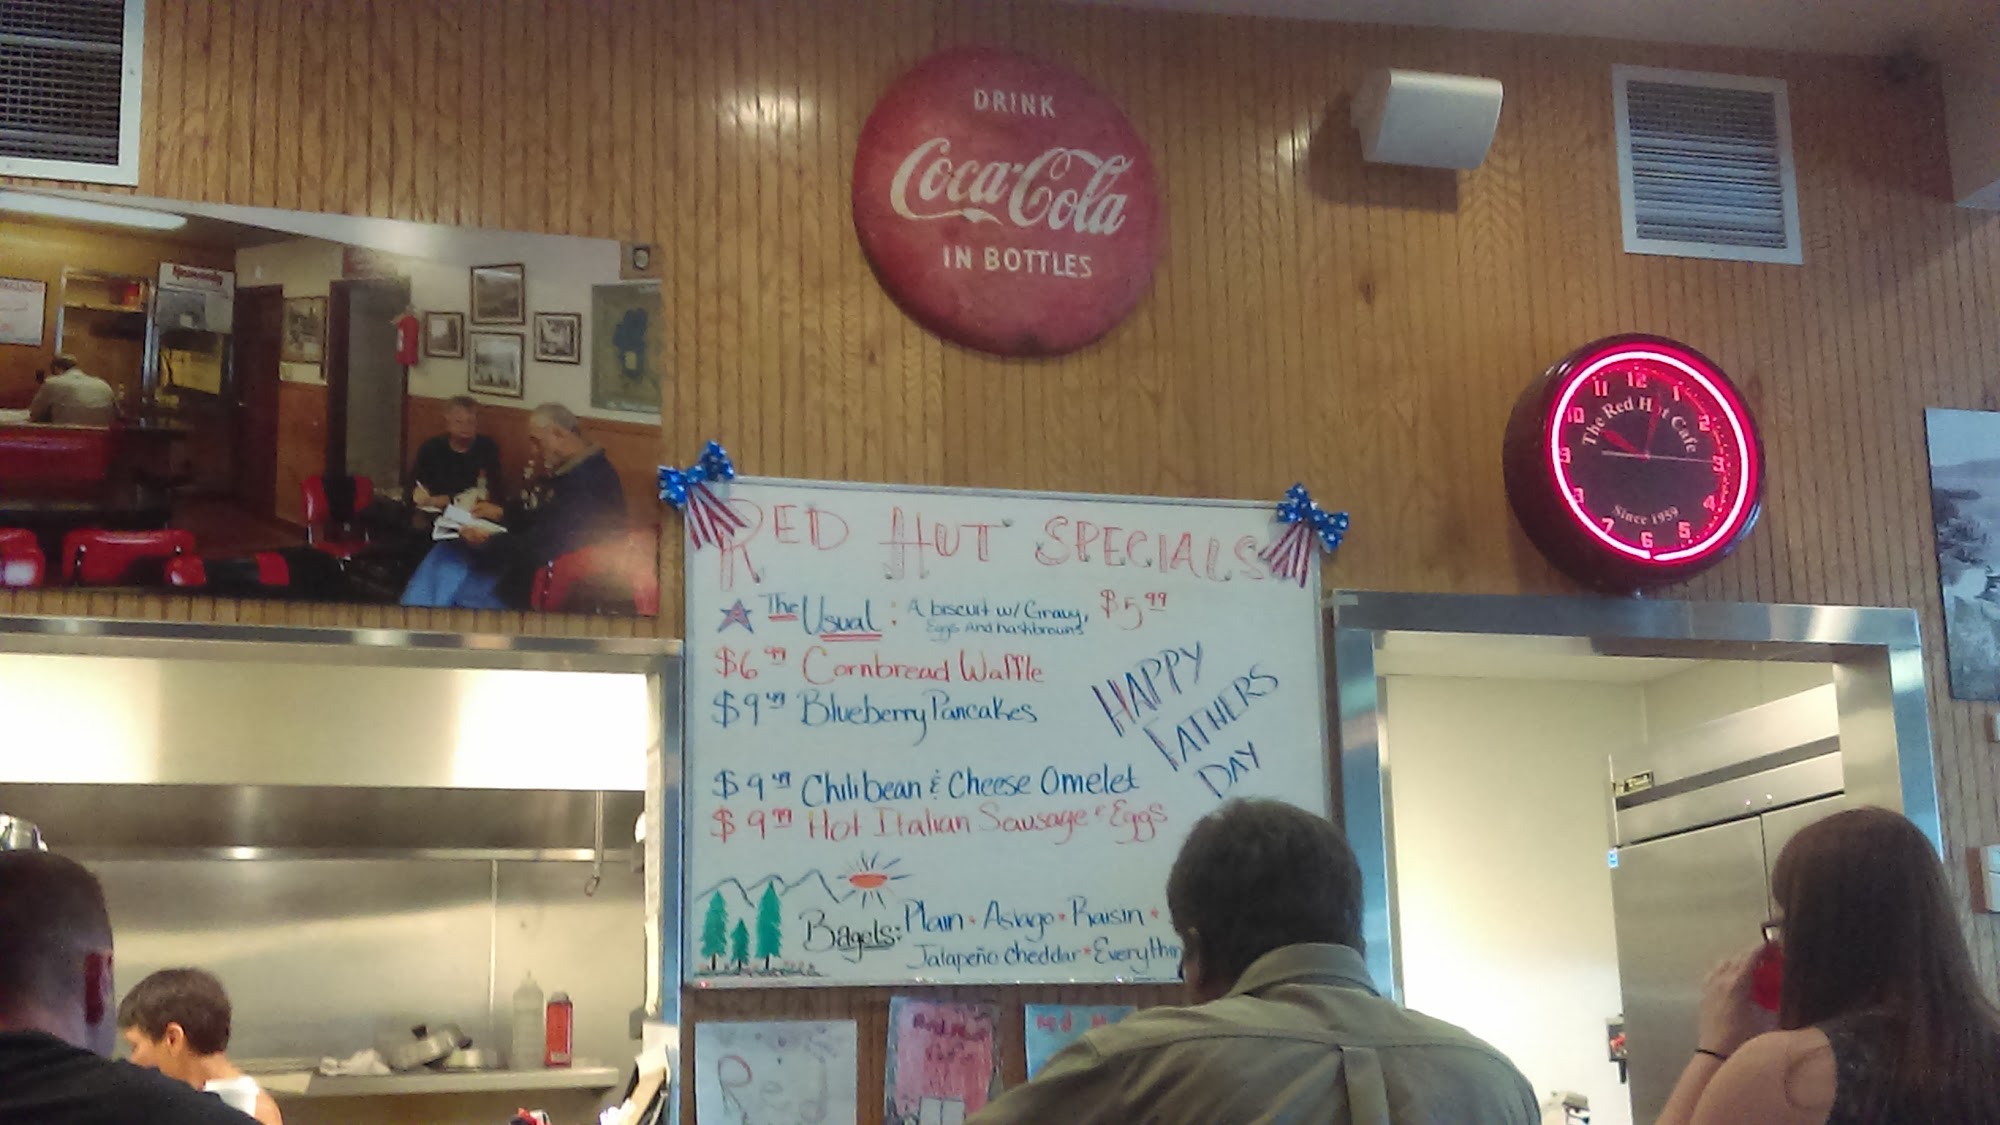 DRINK
Coca-Cola
IN BOTTLES
12
11
1
10
2
The Red Hot Cafe
9
3
4
Since 1959
7
5
6
RED HOT SPECIALS
The Usual: A biscuit w/ Gravy, $5.99
Eggs and hashbrowns
$6.99 Cornbread Waffle
$9.49 Blueberry Pancakes
HAPPY
FATHERS
DAY
$9.49 Chilibean & Cheese Omelet
$9.99 Hot Italian Sausage & Eggs
Bagels: Plain • Asiago • Raisin •
Jalapeño Cheddar • Everythin
Red